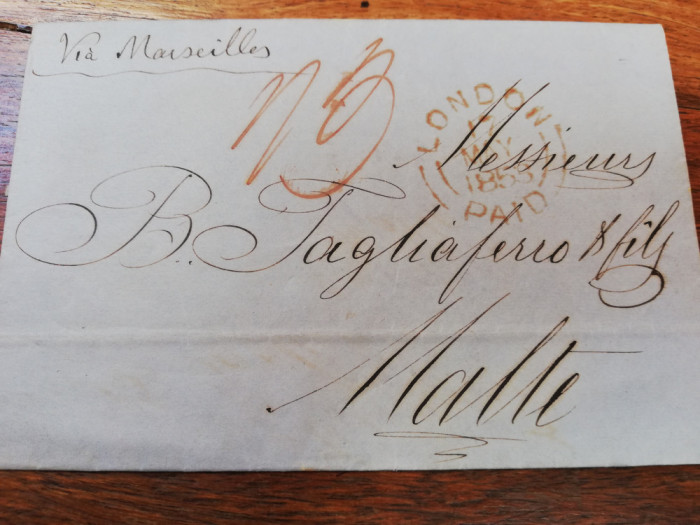 Via Marseilles
LONDON
MAY
1853
PAID
Messieurs
B. Tagliaferro & fils
Malte